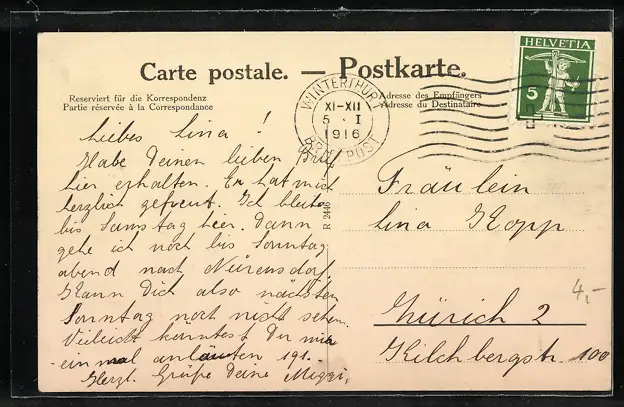 Carte postale. — Postkarte.
Reserviert für die Korrespondenz
Partie réservée à la Correspondance
Adresse des Empfängers
Adresse du Destinataire
HELVETIA
5
WINTERTHUR
XI-XII
5 · I
1916
BRIEFPOST
Liebes Lina!
Habe Deinen lieben Brief
hier erhalten. Er hat mich
herzlich gefreut. Ich bleibe
bis Samstag hier. Dann
gehe ich noch bis Sonntag
abend nach Nürensdorf.
Kann Dich also nächsten
Sonntag noch nicht sehen.
Vieleicht könntest Du mir
einmal anläuten 191.
Herzl. Grüße Deine Miggi.
R 2446
Fräulein
Lina Kopp
4,-
Zürich 2
Kilchbergstr. 100